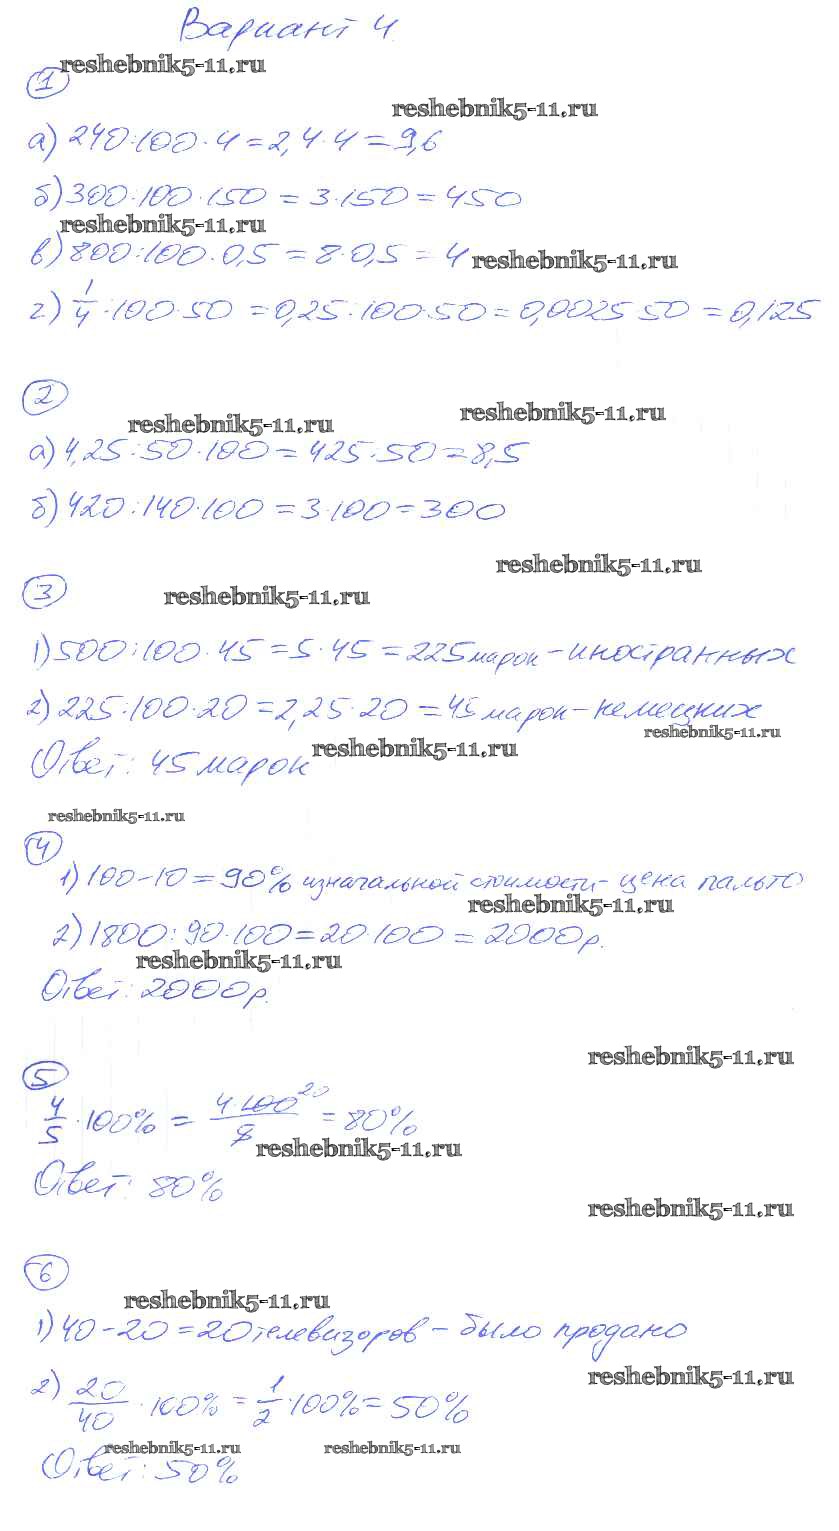 Вариант 4.
reshebnik5-11.ru
1
reshebnik5-11.ru
а) 240:100·4=2,4·4=9,6
б) 300:100·150=3·150=450
reshebnik5-11.ru
в) 800:100·0,5=8·0,5=4
reshebnik5-11.ru
г) 1/4:100·50=0,25:100·50=0,0025 50=0,125
2
reshebnik5-11.ru
reshebnik5-11.ru
а) 4,25:50·100=425:50=8,5
б) 420:140·100=3·100=300
reshebnik5-11.ru
3
reshebnik5-11.ru
1) 500:100·45=5·45=225 марок - иностранных
2) 225:100·20=2,25·20=45 марок - немецких
reshebnik5-11.ru
Ответ: 45 марок
reshebnik5-11.ru
reshebnik5-11.ru
4
1) 100-10=90% изначальной стоимости - цена пальто
reshebnik5-11.ru
2) 1800:90·100=20·100=2000р.
reshebnik5-11.ru
Ответ: 2000р.
reshebnik5-11.ru
5
4/5·100%=4·100/5 20=80%
reshebnik5-11.ru
Ответ: 80%
reshebnik5-11.ru
6
reshebnik5-11.ru
1) 40-20=20 телевизоров - было продано
reshebnik5-11.ru
2) 20/40·100%=1/2·100%=50%
reshebnik5-11.ru
reshebnik5-11.ru
Ответ: 50%